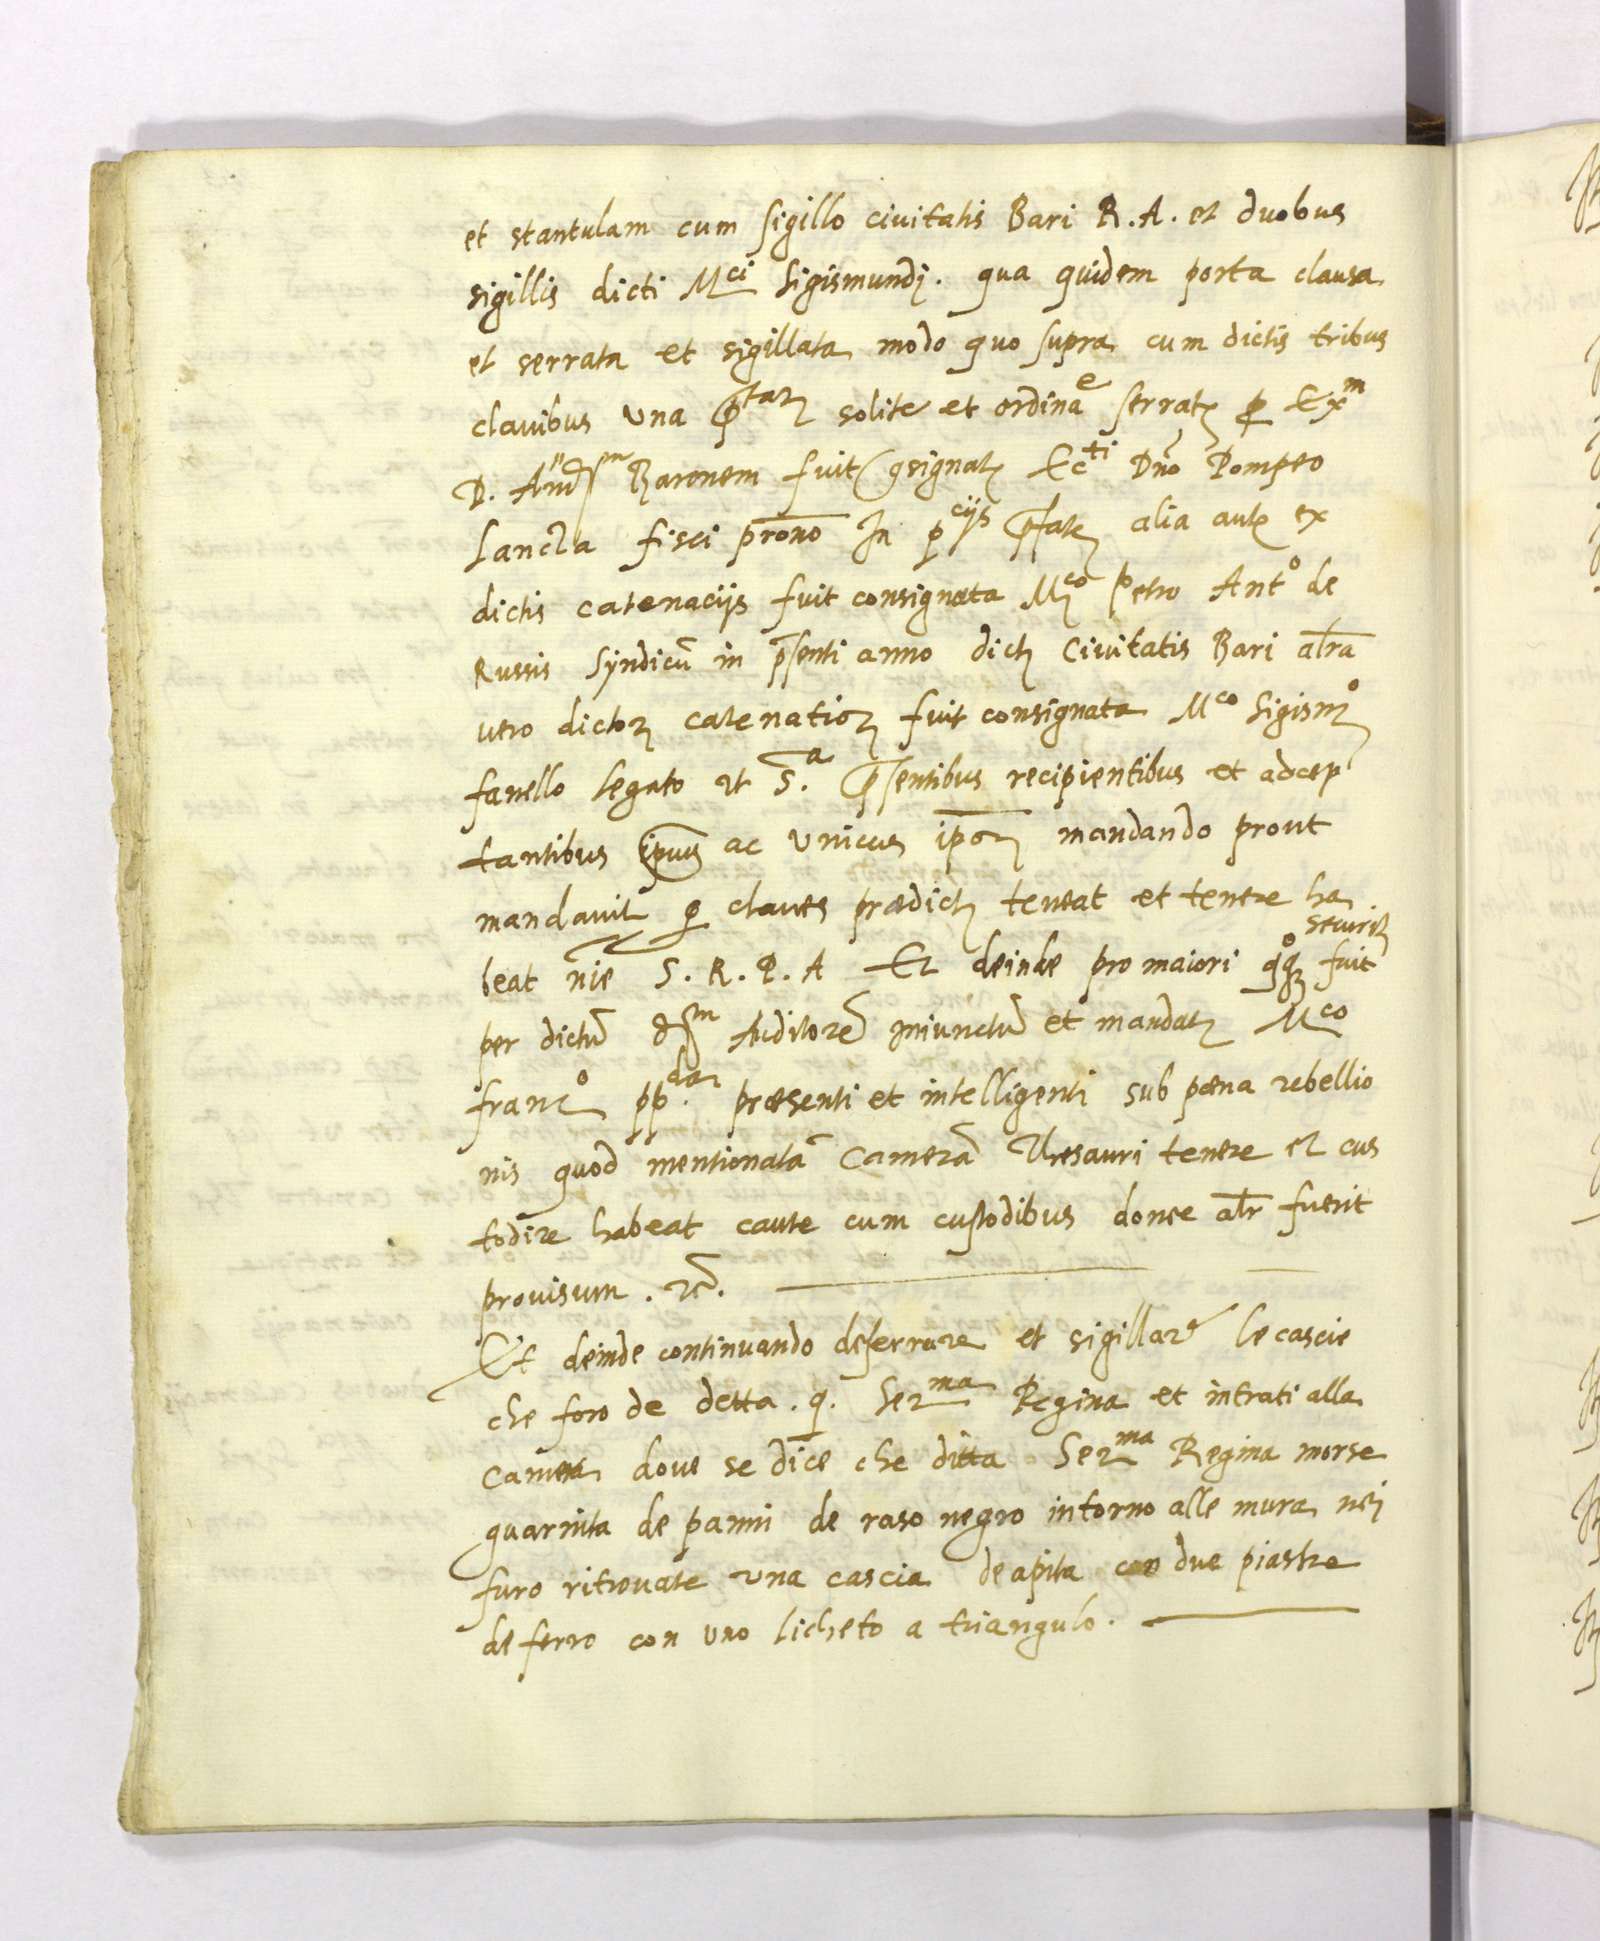 et stantulam cum sigillo civitatis Bari R. A. et duobus
sigillis dicti Mci Sigismundi. qua quidem porta clausa
et serrata et sigillata modo quo supra cum dictis tribus
clavibus una solite et ordinae serrat p Exm
D. Baronem fuit gsignat Ecti Dno Pompeo
Lancta fisci prono In pciis pfate alia aut ex
dictis catenaciis fuit consignata Mco Petro Anto de
Russis Syndicu in psenti anno dict Civitatis Bari alra
vero dictor catenatior fuit consignata Mco Sigismo
fanello legato ut S.a psentibus recipientibus et accep
tantibus ipsius ac unicus ipsor mandando prout
mandavit q claves prædict teneat et tenere ha
beat nie S. R. P. A Et deinde pro maiori securit fuit
per dictu Auditore iniunctu et mandat Mco
franco ppdar præsenti et intelligenti sub pæna rebellio
nis quod mentionata Camera Thesauri tenere et cus
todire habeat caute cum custodibus donec alr fuerit
provisum. &c.
Et deinde continuando deserrare et sigillare le cascie
che foro de detta. q. Serma Regina et intrati alla
Camera dove se dice che ditta Serma Regina morse
guarnita de panni de raso negro intorno alle mura nci
furo ritrovate una cascia de apita con due piastre
de ferro con uno licheto a triangulo.